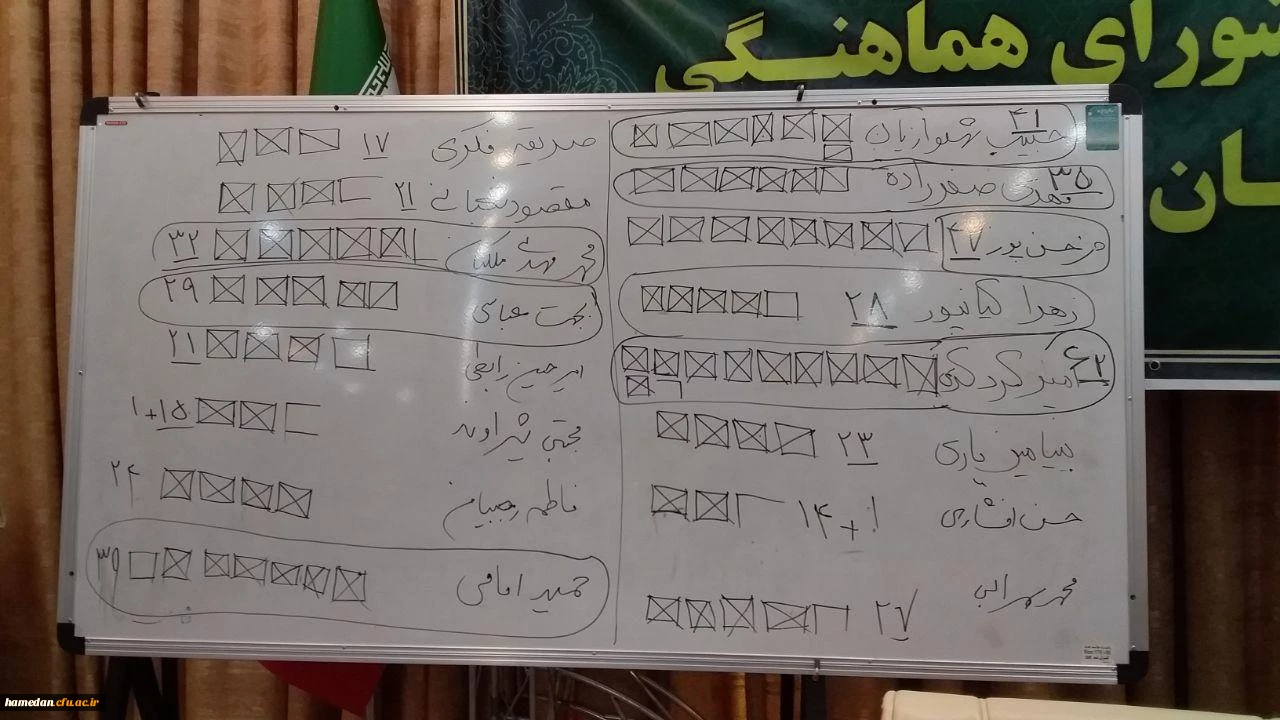 شورای هماهنگی
ـان
۴۱
حبیب شلوارزیان
۳۵
مهدی صفرزاده
حسن پور ۴۷
زهرا کیانپور ۲۸
۶۲
پیامبر یاری ۲۳
حسن افشاری ۱۴+۱
محمد سهرابی ۲۷
صدیقه فکری ۱۷
مقصود ۲۱
محمد مهدی ملکیان ۳۲
بهجت عباسی ۲۹
امیرحسین رابطی ۲۱
مجتبی شیراوند ۱۵+۱
فاطمه رجبیان ۲۴
حمید امامی ۳۹
hamedan.cfu.ac.ir